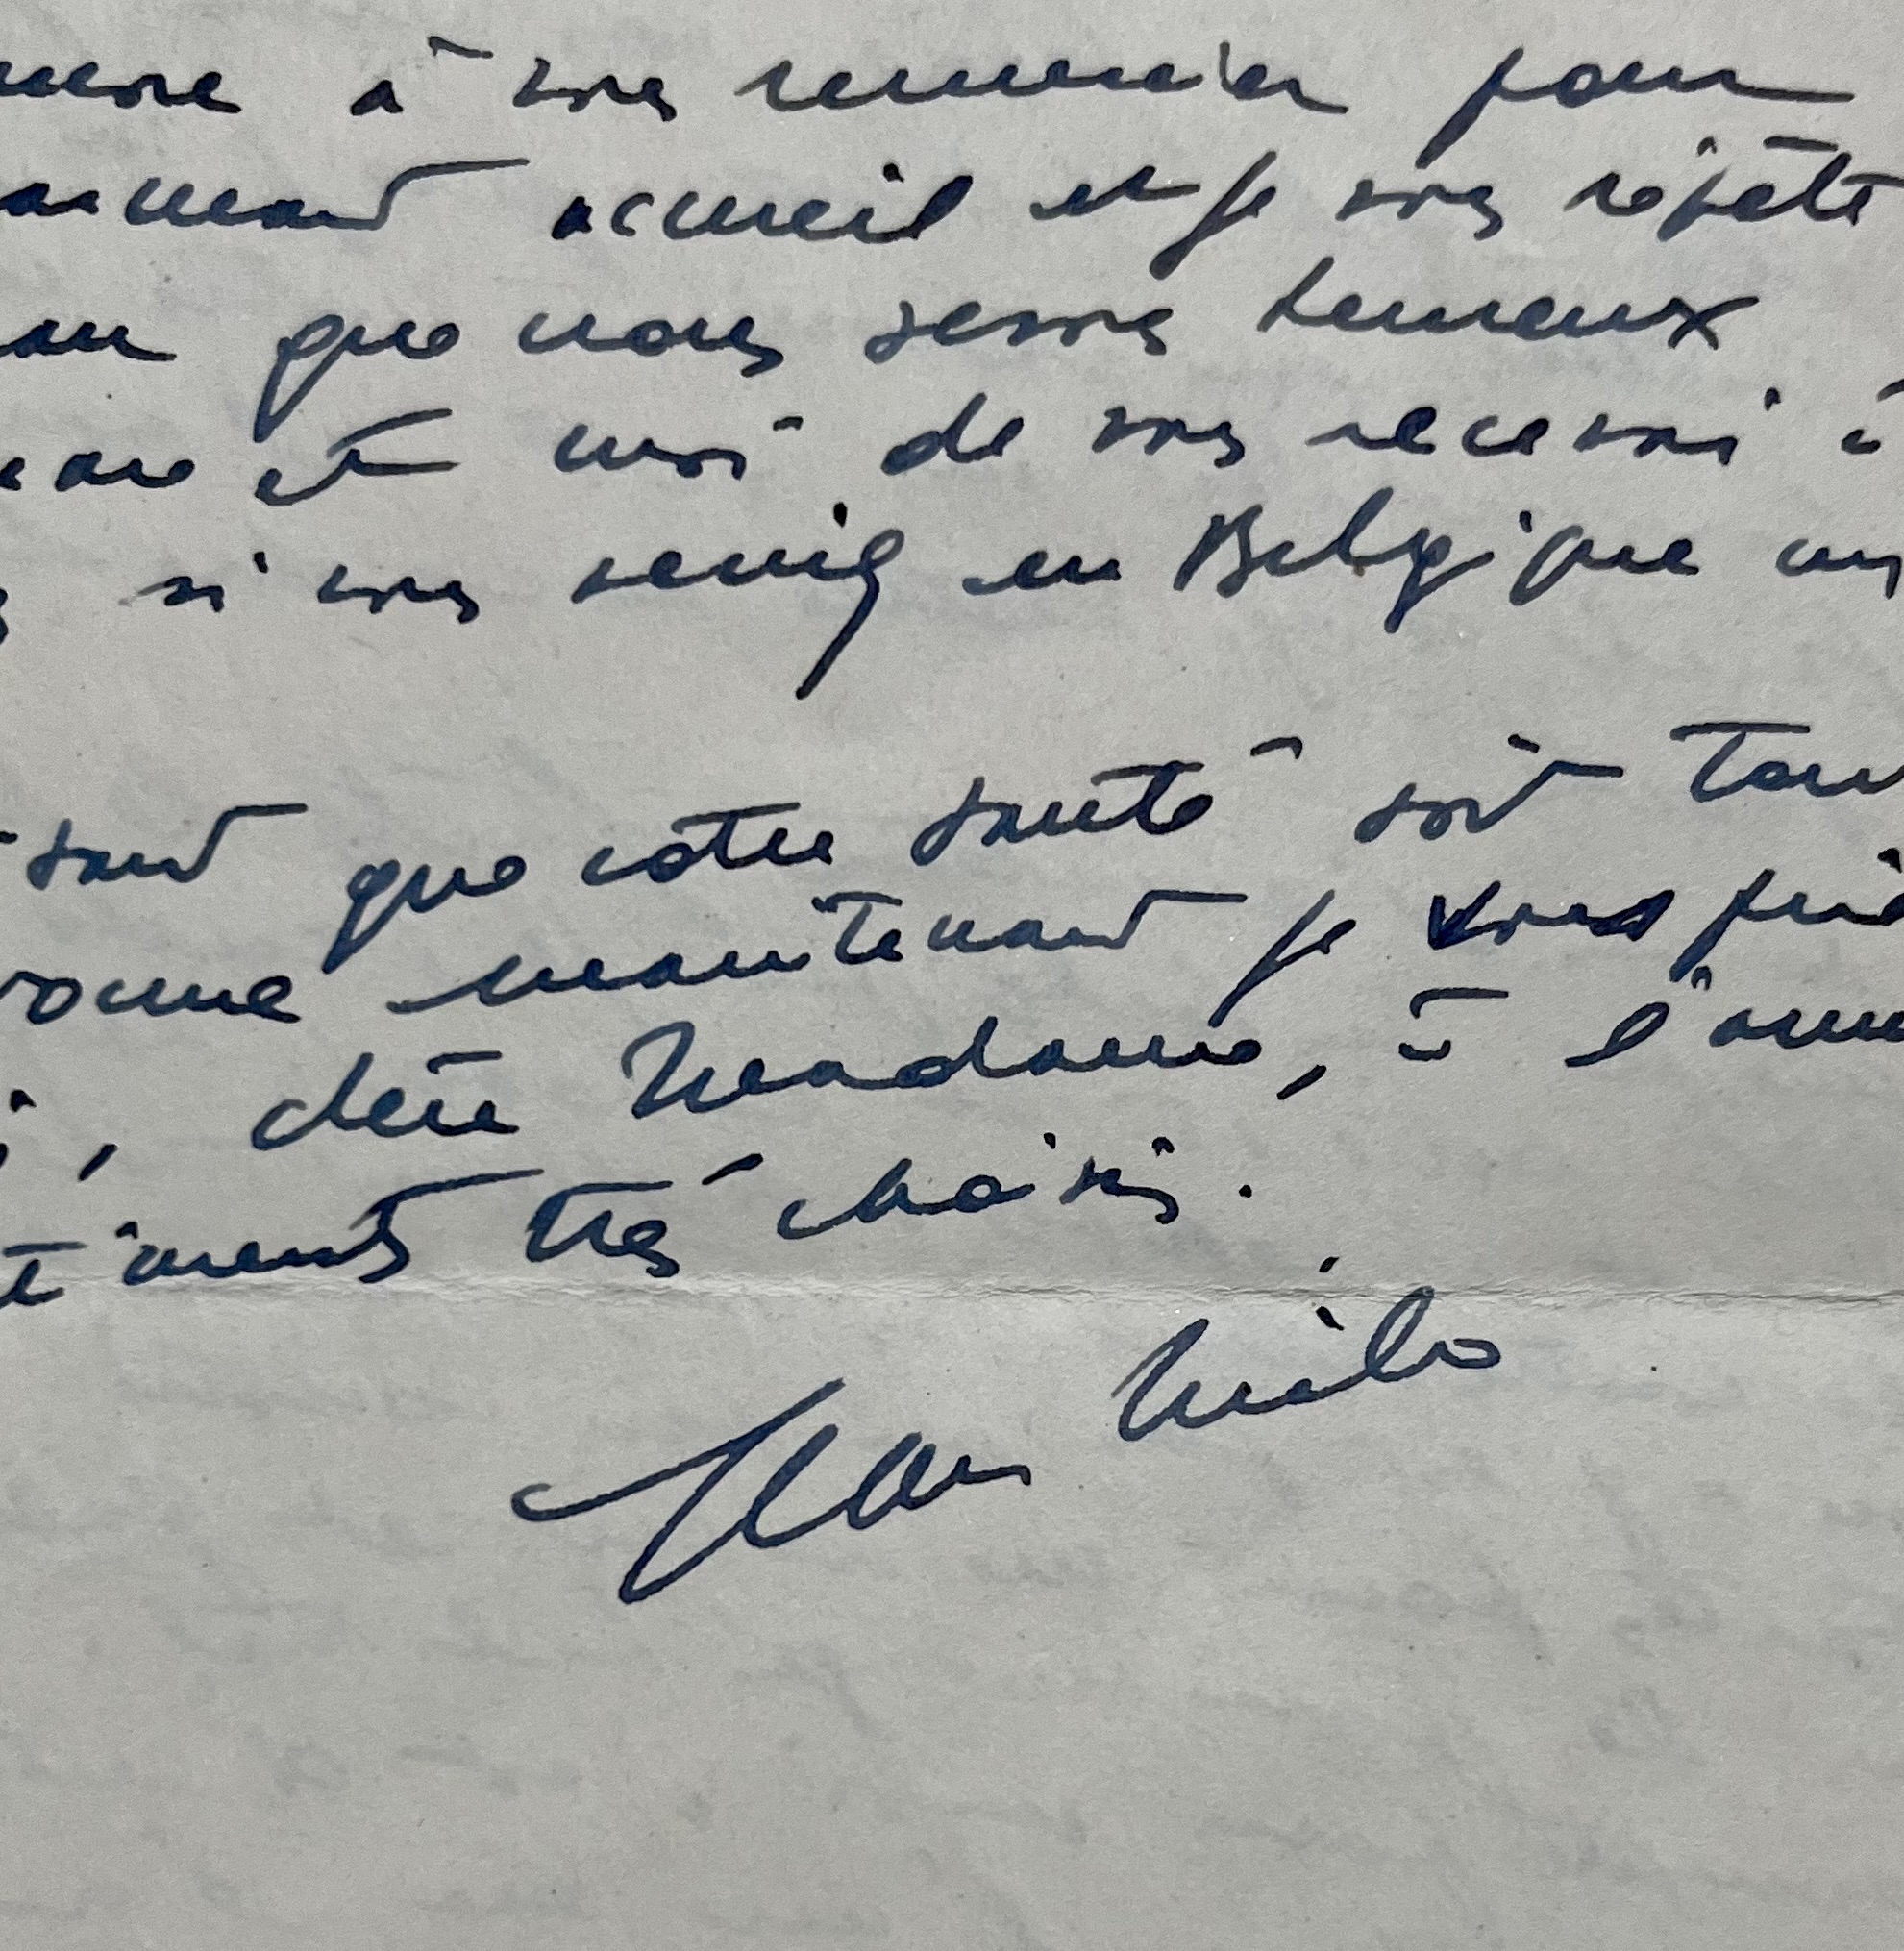 à vous remercier pour
accueil et je vous répète
que nous serons heureux
et moi de vous recevoir à
si vous veniez en Belgique un
que votre santé soit tout
maintenant je vous prie
, chère Madame, à l'
timents très choisis.
Jean Milo